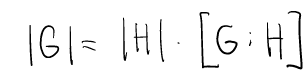 |G| = |H| · [G : H]